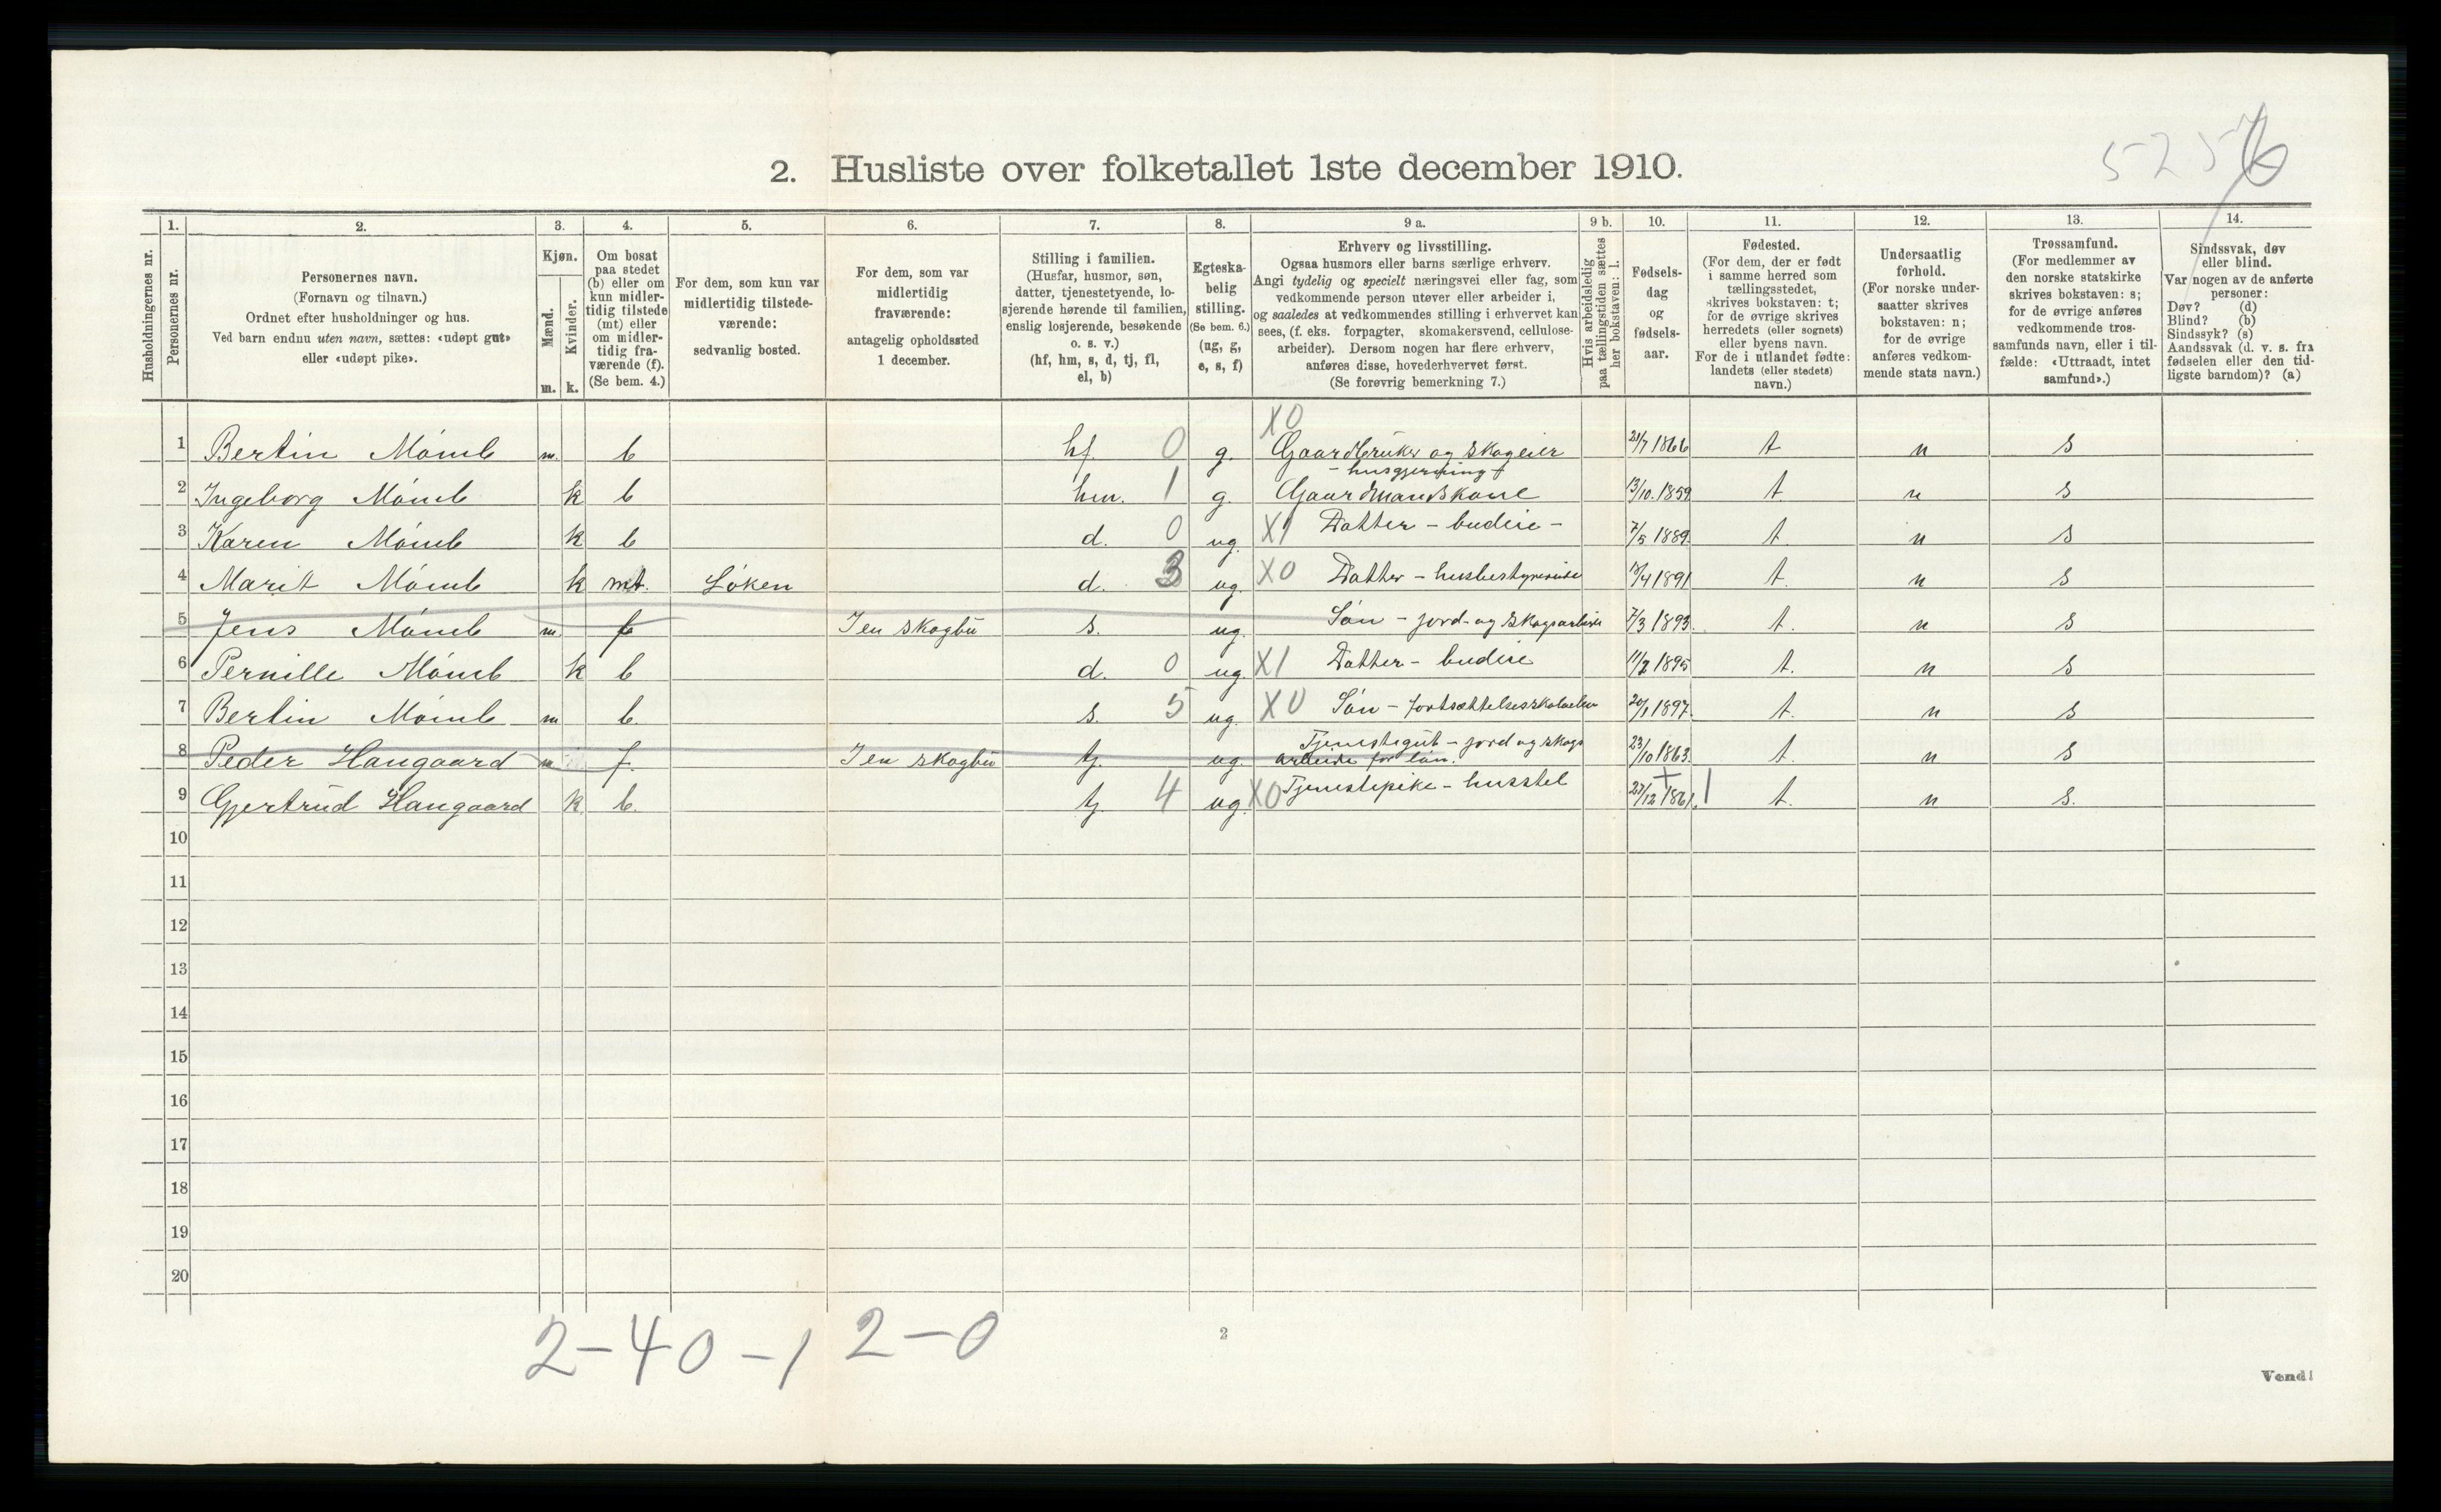 525 6
2. Husliste over folketallet 1ste december 1910.
1. 2. 3. 4. 5. 6. 7. 8. 9 a. 9 b. 10. 11. 12. 13. 14.
Husholdningernes nr.
Personernes nr.
Personernes navn.
(Fornavn og tilnavn.)
Ordnet efter husholdninger og hus.
Ved barn endnu uten navn, sættes: «udøpt gut»
eller «udøpt pike».
Kjøn.
Mænd.
Kvinder.
m. k.
Om bosat
paa stedet
(b) eller om
kun midler-
tidig tilstede
(mt) eller
om midler-
tidig fra-
værende (f).
(Se bem. 4.)
For dem, som kun var
midlertidig tilstede-
værende:
sedvanlig bosted.
For dem, som var
midlertidig
fraværende:
antagelig opholdssted
1 december.
Stilling i familien.
(Husfar, husmor, søn,
datter, tjenestetyende, lo-
sjerende hørende til familien,
enslig losjerende, besøkende
o. s. v.)
(hf, hm, s, d, tj, fl,
el, b)
Egteska-
belig
stilling.
(Se bem. 6.)
(ug, g,
e, s, f)
Erhverv og livsstilling.
Ogsaa husmors eller barns særlige erhverv.
Angi tydelig og specielt næringsvei eller fag, som
vedkommende person utøver eller arbeider i,
og saaledes at vedkommendes stilling i erhvervet kan
sees, (f. eks. forpagter, skomakersvend, cellulose-
arbeider). Dersom nogen har flere erhverv,
anføres disse, hovederhvervet først.
(Se forøvrig bemerkning 7.)
Hvis arbeidsledig
paa tællingstiden sættes
her bokstaven: l.
Fødsels-
dag
og
fødsels-
aar.
Fødested.
(For dem, der er født
i samme herred som
tællingsstedet,
skrives bokstaven: t;
for de øvrige skrives
herredets (eller sognets)
eller byens navn.
For de i utlandet fødte:
landets (eller stedets)
navn.)
Undersaatlig
forhold.
(For norske under-
saatter skrives
bokstaven: n;
for de øvrige
anføres vedkom-
mende stats navn.)
Trossamfund.
(For medlemmer av
den norske statskirke
skrives bokstaven: s;
for de øvrige anføres
vedkommende tros-
samfunds navn, eller i til-
fælde: «Uttraadt, intet
samfund».)
Sindssvak, døv
eller blind.
Var nogen av de anførte
personer:
Døv? (d)
Blind? (b)
Sindssyk? (s)
Aandssvak (d. v. s. fra
fødselen eller den tid-
ligste barndom)? (a)
X0
1 Bertin Mömb m. b hf. 0 g. Gaardbruker og skogeier 21/7 1866 t n s
- husgjerning
2 Ingeborg Mömb k b hm. 1 g. Gaardmandskone 13/10. 1859 t. n s
3 Karen Mömb k b d. 0 ug. X1 Datter - budeie - 7/5 1889. t n s
4 Marit Mömb k mt. Löken d. 3 ug. X0 Datter - husbestyrerinde 13/4 1891 t. n s
5 Jens Mömb m. f Jen skogbu s. ug. Sön - jord- og skogsarbeide 7/3 1893. t. n s
6 Pernille Mömb k b d. 0 ug. X1 Datter - budeie 11/2 1895 t. n s
7 Bertin Mömb m b. s. 5 ug. X0 Sön - fortsættelsesskoleelev 20/1 1897. t. n s
Tjenestegut - jord og skogs
8 Peder Haugaard m f. Jen skogbu tj. ug arbeide for lön. 23/10 1863. t. n s
9 Gjertrud Haugaard k b. tj. 4 ug. X0 Tjenestepike - husstel 27/12 1861. 1 t. n s.
10
11
12
13
14
15
16
17
18
19
20
2-40-1 2-0
2
Vend!